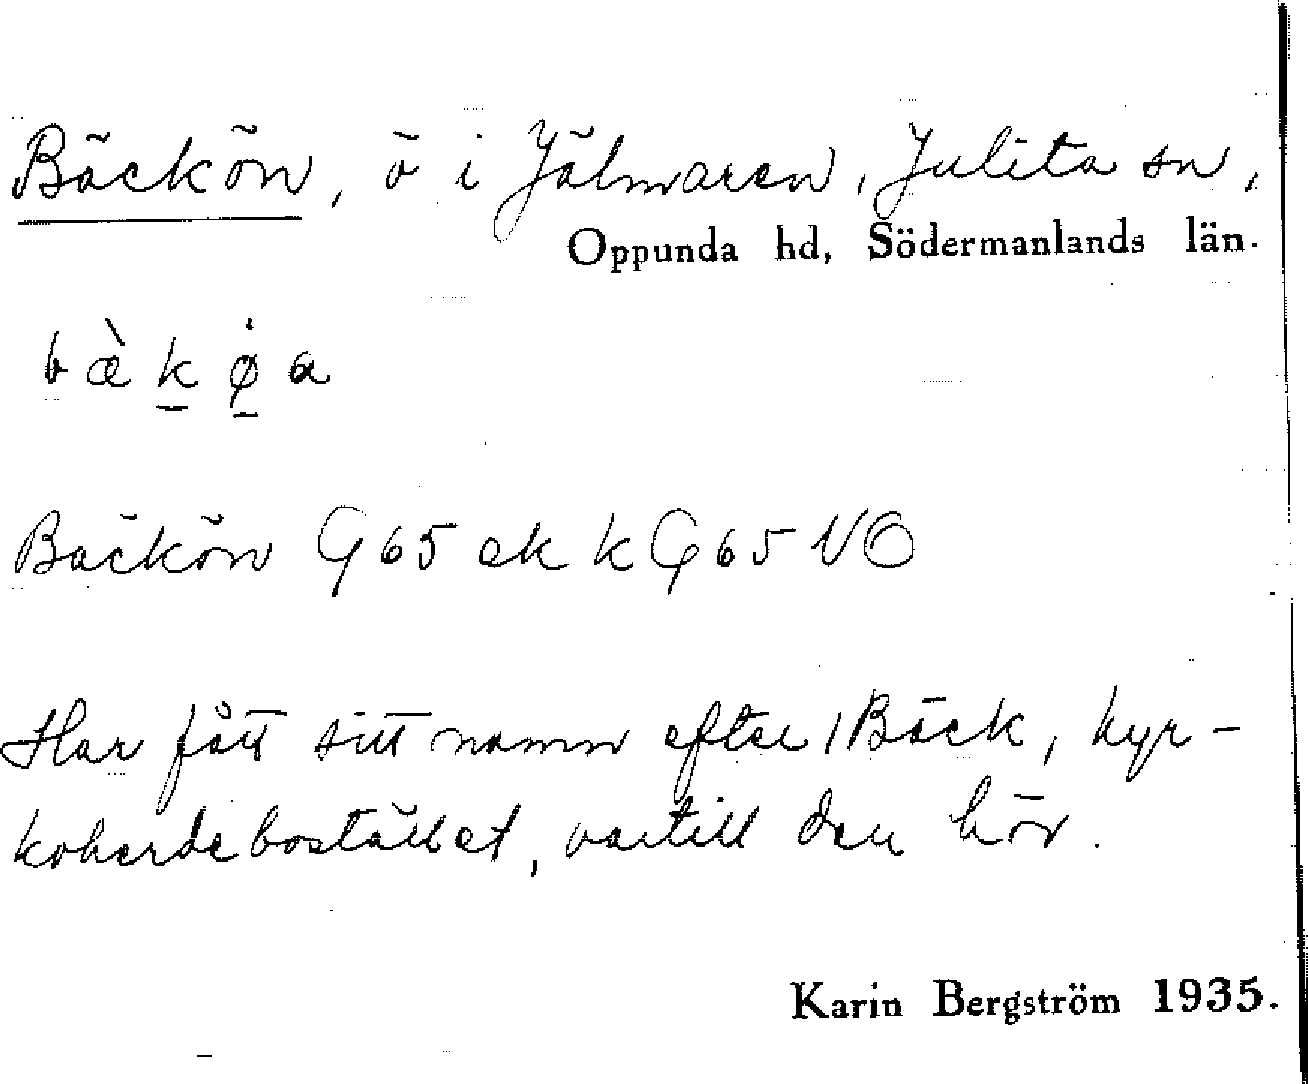 Bäckön, ö i Jälmaren, Julita sn,
Oppunda hd, Södermanlands län.
bæ̀k ø̇a
Bäckön G65 ek k G65 NO
Har fått sitt namn efter Bäck, kyr-
koherdebostället, vartill den hör.
Karin Bergström 1935.